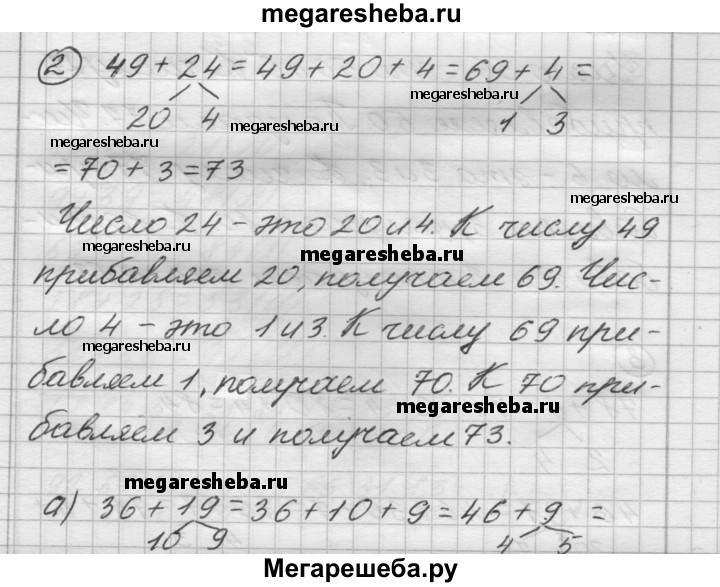 megaresheba.ru
2 49 + 24 = 49 + 20 + 4 = 69 + 4 =
megaresheba.ru
20 4 megaresheba.ru 1 3
megaresheba.ru
= 70 + 3 = 73
megaresheba.ru
Число 24 – это 20 и 4. К числу 49
megaresheba.ru megaresheba.ru
прибавляем 20, получаем 69. Чис-
ло 4 – это 1 и 3. К числу 69 при-
megaresheba.ru
бавляем 1, получаем 70. К 70 при-
megaresheba.ru
бавляем 3 и получаем 73.
megaresheba.ru
а) 36 + 19 = 36 + 10 + 9 = 46 + 9 =
10 9 4 5
Мегарешеба.ру